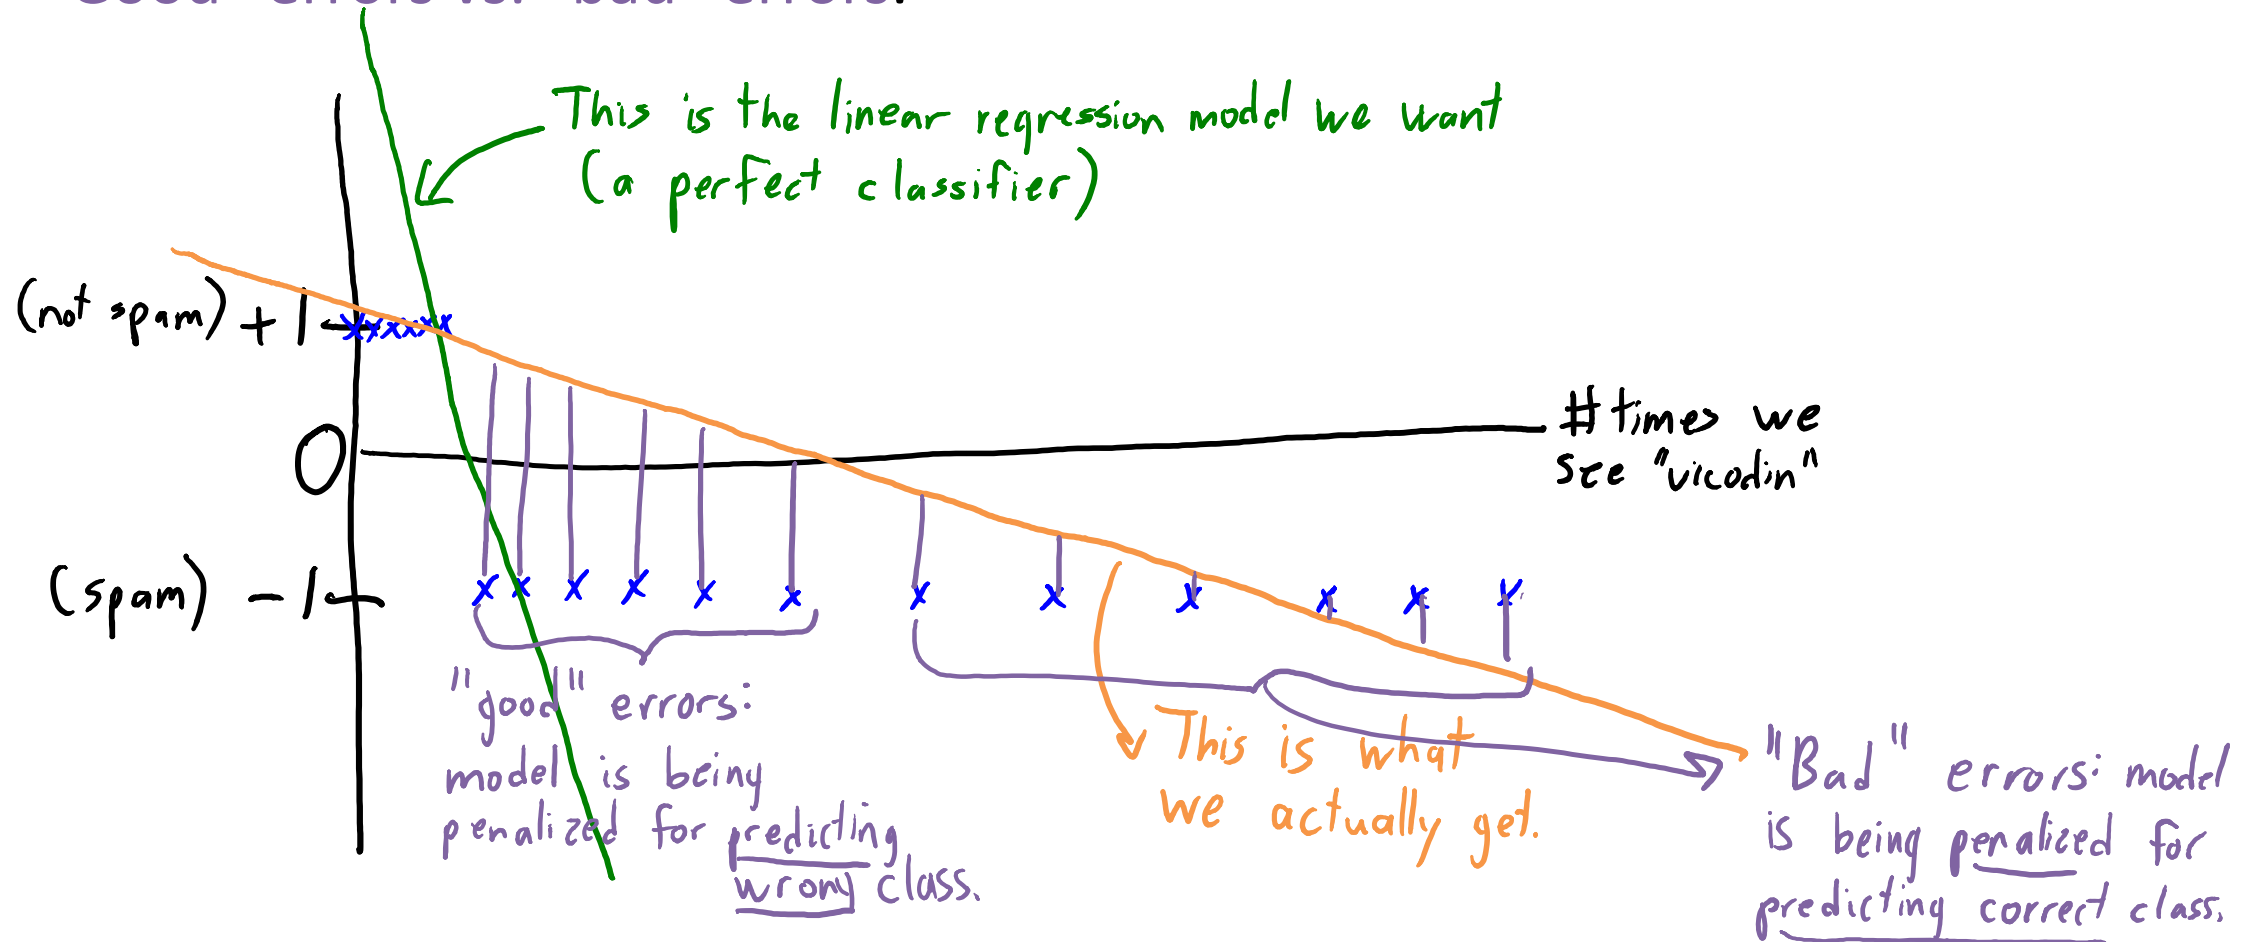 Good errors vs. bad errors:
This is the linear regression model we want
(a perfect classifier)
(not spam) +1
0
# times we
see "vicodin"
(spam) -1
"good" errors:
model is being
penalized for predicting
wrong class.
This is what
we actually get.
"Bad" errors: model
is being penalized for
predicting correct class.